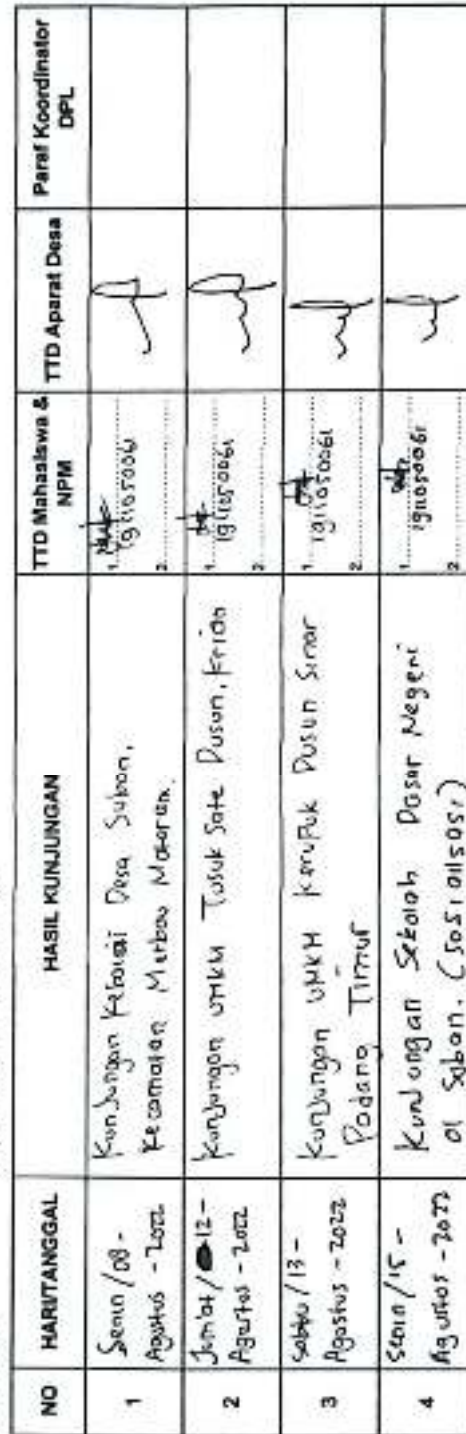 NO HARI/TANGGAL HASIL KUNJUNGAN TTD Mahasiswa & NPM TTD Aparat Desa Paraf Koordinator DPL
1 Senin / 08 -
Agustus - 2022
Kunjungan Kebalai Desa Suban,
Kecamatan Merbau Mataram.
1.
1911050061
2.
2 Jum'at / 12 -
Agustus - 2022
Kunjungan UMKM Tusuk Sate Dusun, Krian
1.
1911050061
2.
3 Sabtu / 13 -
Agustus - 2022
Kunjungan UMKM Kerupuk Dusun Sinar
Padang Timur
1.
1911050061
2.
4 Senin / 15 -
Agustus - 2022
Kunjungan Sekolah Dasar Negeri
01 Suban.
1.
1911050061
2.